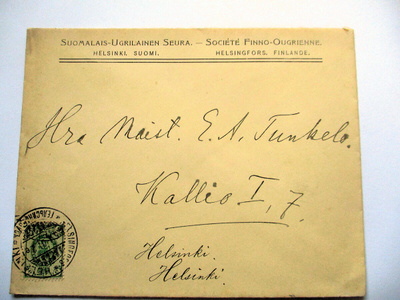 SUOMALAIS-UGRILAINEN SEURA. — SOCIÉTÉ FINNO-OUGRIENNE.
HELSINKI. SUOMI. HELSINGFORS. FINLANDE.
Hra Maist. E. A. Tunkelo.
Kallio I, 7.
Helsinki.
Helsinki.